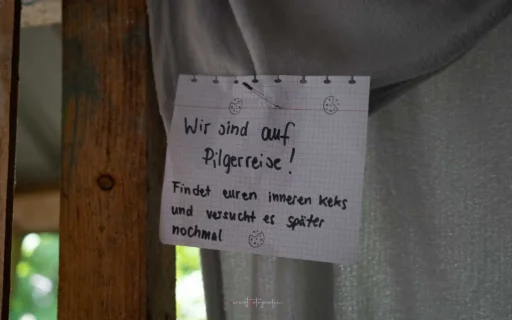 Wir sind auf
Pilgerreise!
Findet euren inneren Keks
und versucht es später
nochmal